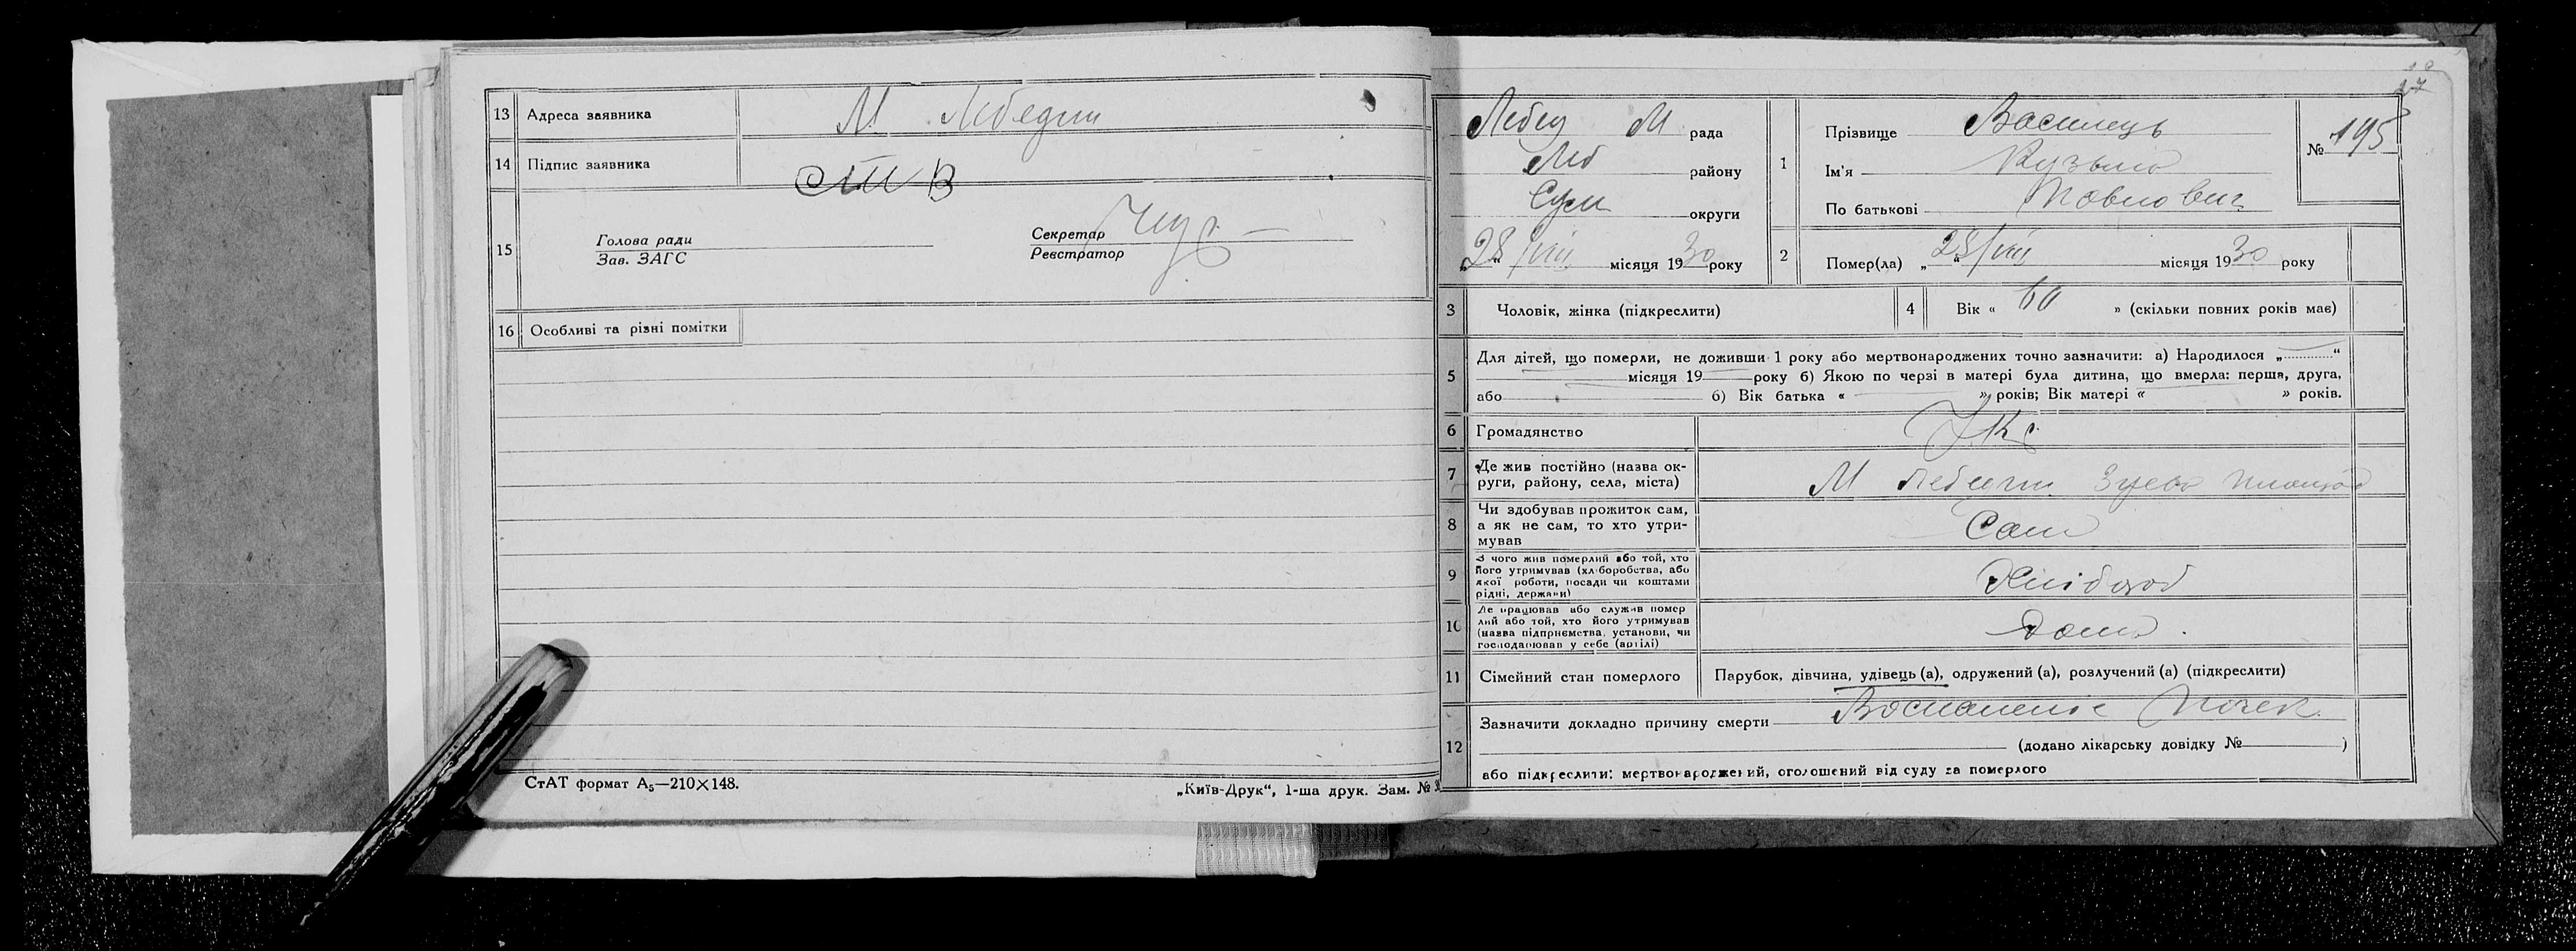 13 Адреса заявника М Лебедин
14 Підпис заявника
15 Голова ради
Зав. ЗАГС
Секретар
Реєстратор
16 Особливі та різні помітки
СтАТ формат А₅—210×148.
„Київ-Друк“, 1-ша друк. Зам. №
17
Лебед М рада
Леб району
Сум округи
„28“ /VIII місяця 1930 року
1 Прізвище Василець
Ім'я Кузьма
По батькові Павлович
№ 195
2 Помер(ла) „28“/VIII місяця 1930 року
3 Чоловік, жінка (підкреслити)
4 Вік « 60 » (скільки повних років має)
5 Для дітей, що померли, не доживши 1 року або мертвонароджених точно зазначити: а) Народилося „ “
місяця 19 року б) Якою по черзі в матері була дитина, що вмерла: перша, друга,
або б) Вік батька « » років; Вік матері « » років.
6 Громадянство Укр
7 Де жив постійно (назва ок-
руги, району, села, міста) М Лебедин площад
8 Чи здобував прожиток сам,
а як не сам, то хто утри-
мував Сам
9 З чого жив померлий або той, хто
його утримував (хліборобства, або
якої роботи, посади чи коштами
рідні, держави)
10 Де працював або служив помер
лий або той, хто його утримував
(назва підприємства, установи, чи
господарював у себе (артілі) Дома.
11 Сімейний стан померлого Парубок, дівчина, удівець (а), одружений (а), розлучений (а) (підкреслити)
12 Зазначити докладно причину смерти Воспаление Почек
(додано лікарську довідку № )
або підкреслити: мертвонароджений, оголошений від суду за померлого